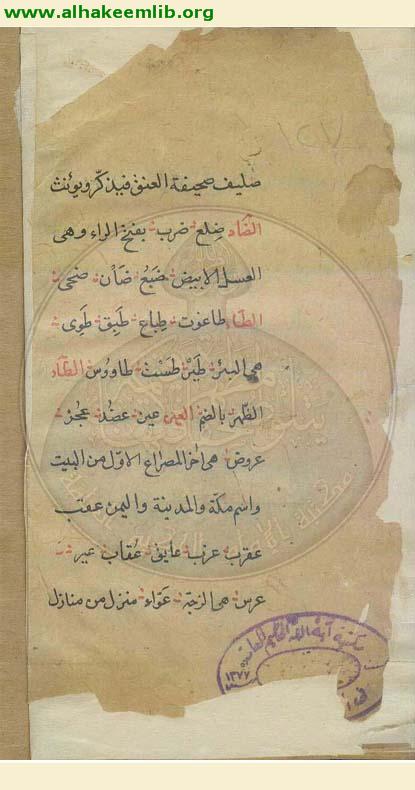 www.alhakeemlib.org
صليف صحيفة العنق فيذكر ويؤنث
الضاد ضلع ضرب بفتح الراء وهى
العسل الابيض ضبع ضان ضحى
الطاء طاغوت طباع طبق طوى
هى البئر طير طست طاووس الظاء
الظهر بالضم العين عين عضد عجز
عروض هى اخر المصراع الاول من البيت
واسم مكة والمدينة واليمن عقب
عقرب عرب عاتق عقاب عير
عرس هى الزوجة عواء منزل من منازل
مكتبة آية الله الحكيم العامة
١٣٧٧